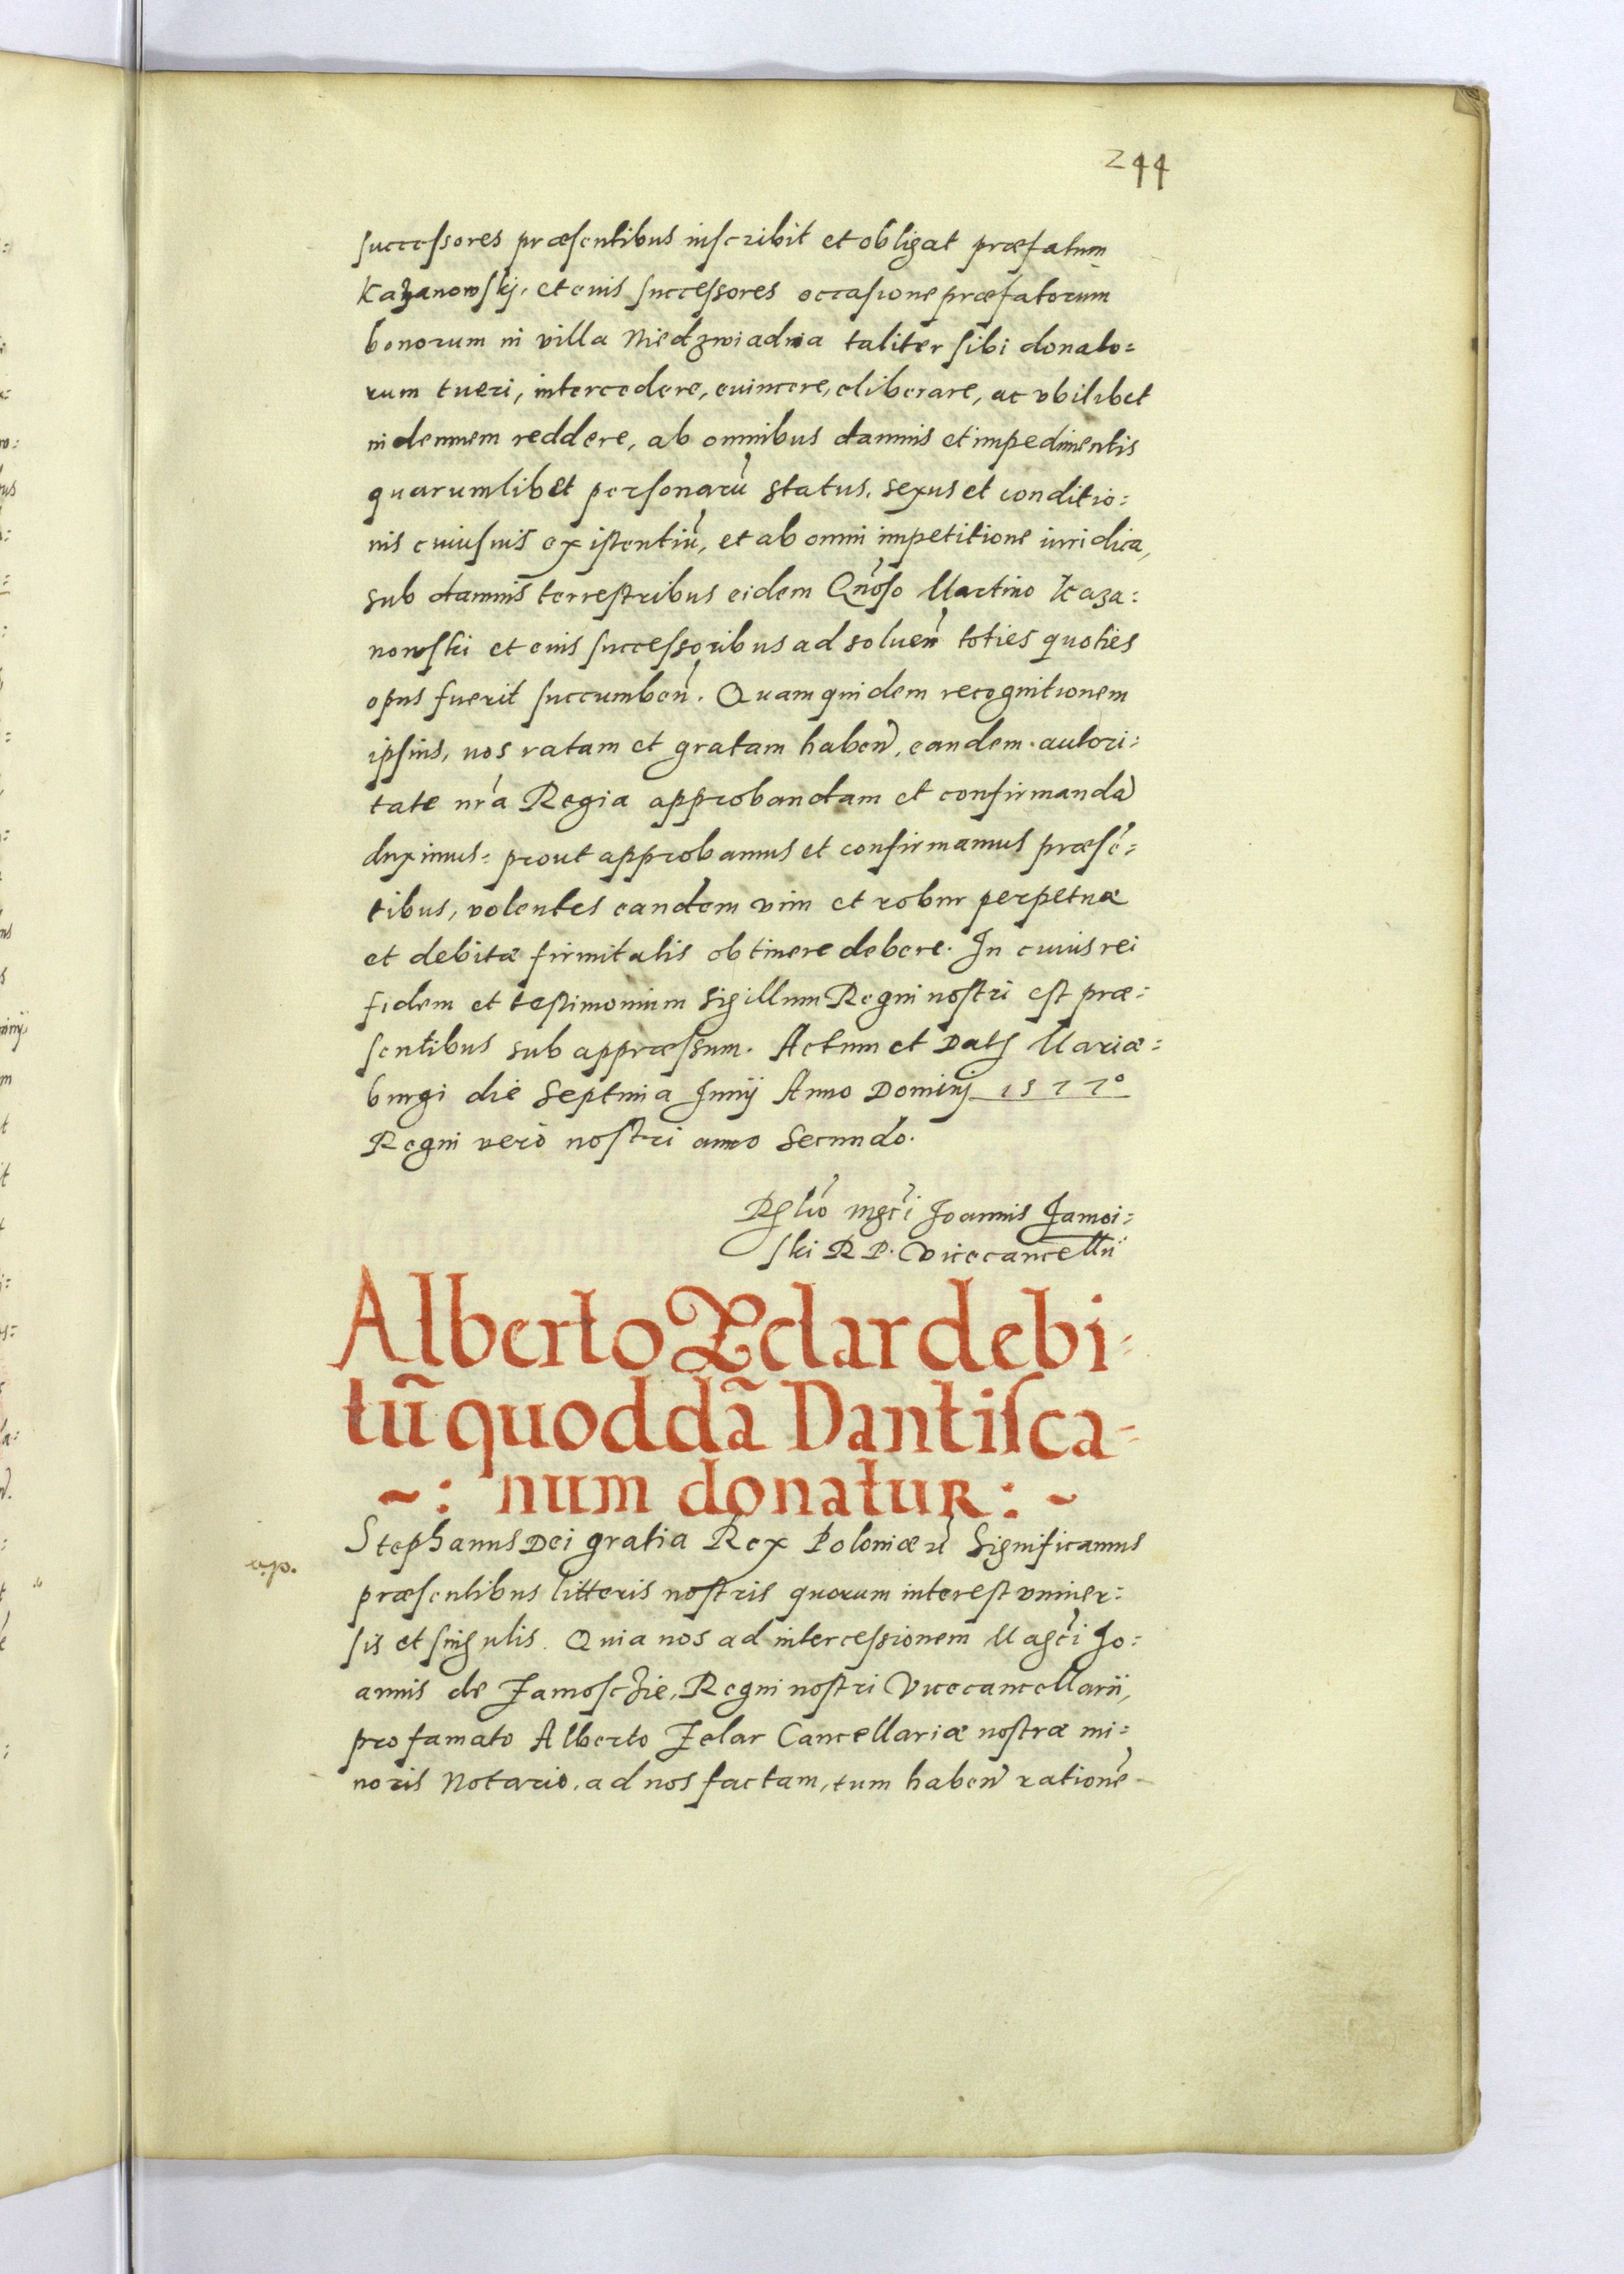 244
successores præsentibus inscribit et obligat præfatum
Kazanowskj, et eius successores occasione præfatorum
bonorum in villa Niedzwiadnia taliter sibi donato=
rum tueri, intercedere, euincere, eliberare, ac vbilibet
indemnem reddere, ab omnibus damnis et impedimentis
quarumlibet personarũ status, sexus et conditio=
nis cuiusuis existentiũ, et ab omni impetitione iuridica,
sub damnis terrestribus eidem Gnõso Martino Kaza=
nowski et eius successoribus ad soluen̄ toties quoties
opus fuerit succumben̄. Quam quidem recognitionem
ipsius, nos ratam et gratam haben̄, eandem autori=
tate nr̃a Regia approbandam et confirmandã
duximus: prout approbamus et confirmamus præsẽ=
tibus, volentes eandem vim et robur perpetuæ
et debitæ firmitatis obtinere debere. In cuius rei
fidem et testimonium Sigillum Regni nostri est præ=
sentibus sub appræssum. Actum et Dat Mariæ=
burgi die Septima Junij Anno Dominj 1577°
Regni verò nostri anno Secundo.
Rel̃io mgc̃i Joannis Zamoi=
ski R P. Vicecancellii
Alberto Zelar debi=
tũ quoddã Dantisca=
~: num donatur: ~
Stephanus Dei gratia Rex Poloniæ Significamus
a.p.
præsentibus litteris nostris quorum interest vniuer=
sis et singulis. Quia nos ad intercessionem Magc̃i Jo=
annis de Zamosczie, Regni nostri Vicecancellarii,
pro famato Alberto Zelar Cancellariæ nostræ mi=
noris Notario, ad nos factam, tum haben̄ rationẽ